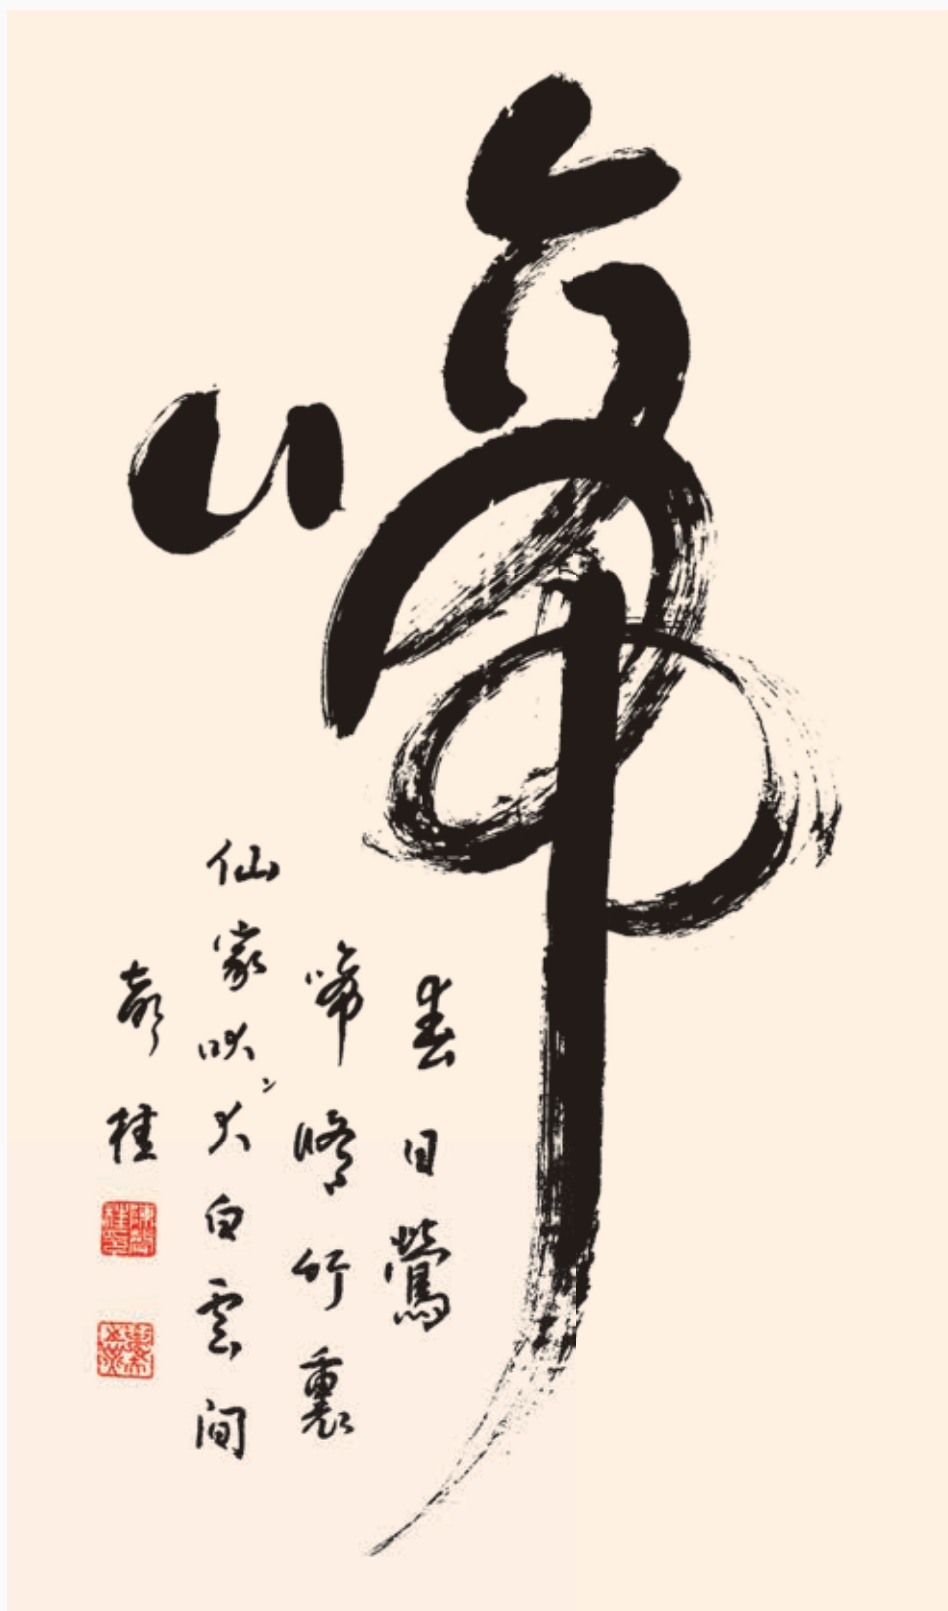 啼
春日鶯
啼脩竹裏
仙家吠犬白雲間
桂